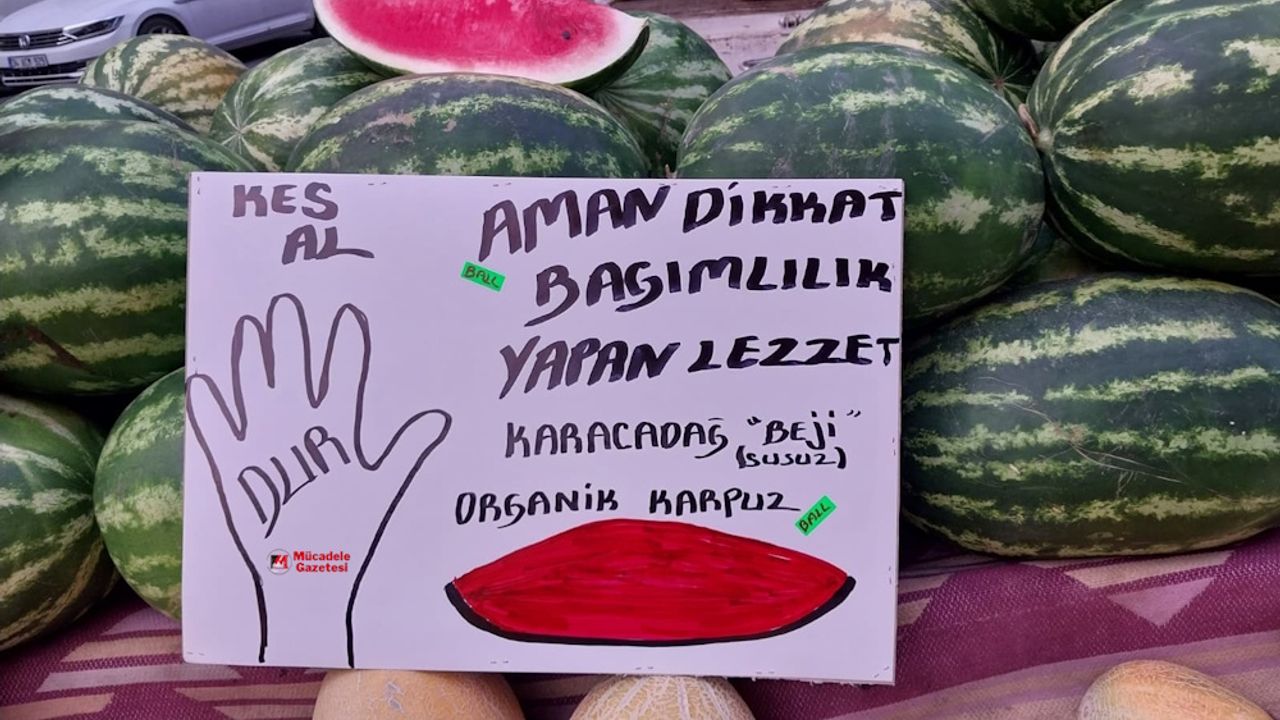 KES
AL
AMAN DİKKAT
BALL
BAGIMLILIK
YAPAN LEZZET
DUR
KARACADAĞ "BEJİ"
(SUSUZ)
ORGANİK KARPUZ
BALL
Mücadele
Gazetesi